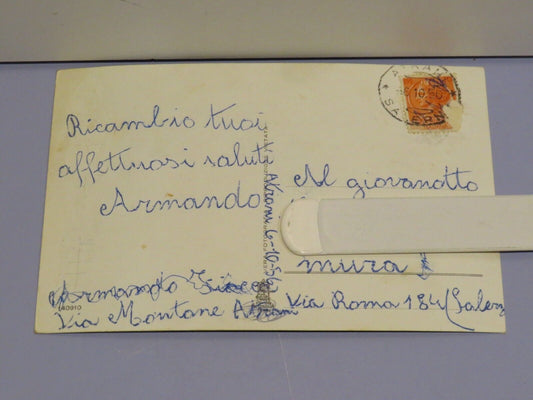 Ricambio tuoi
affettuosi saluti
Armando
Atrani 6-10-56
Armando
Via Montane Atrani
140910
ATRANI
10.56
SALERNO
Al giovanotto
mura
Via Roma 184 (Salerno